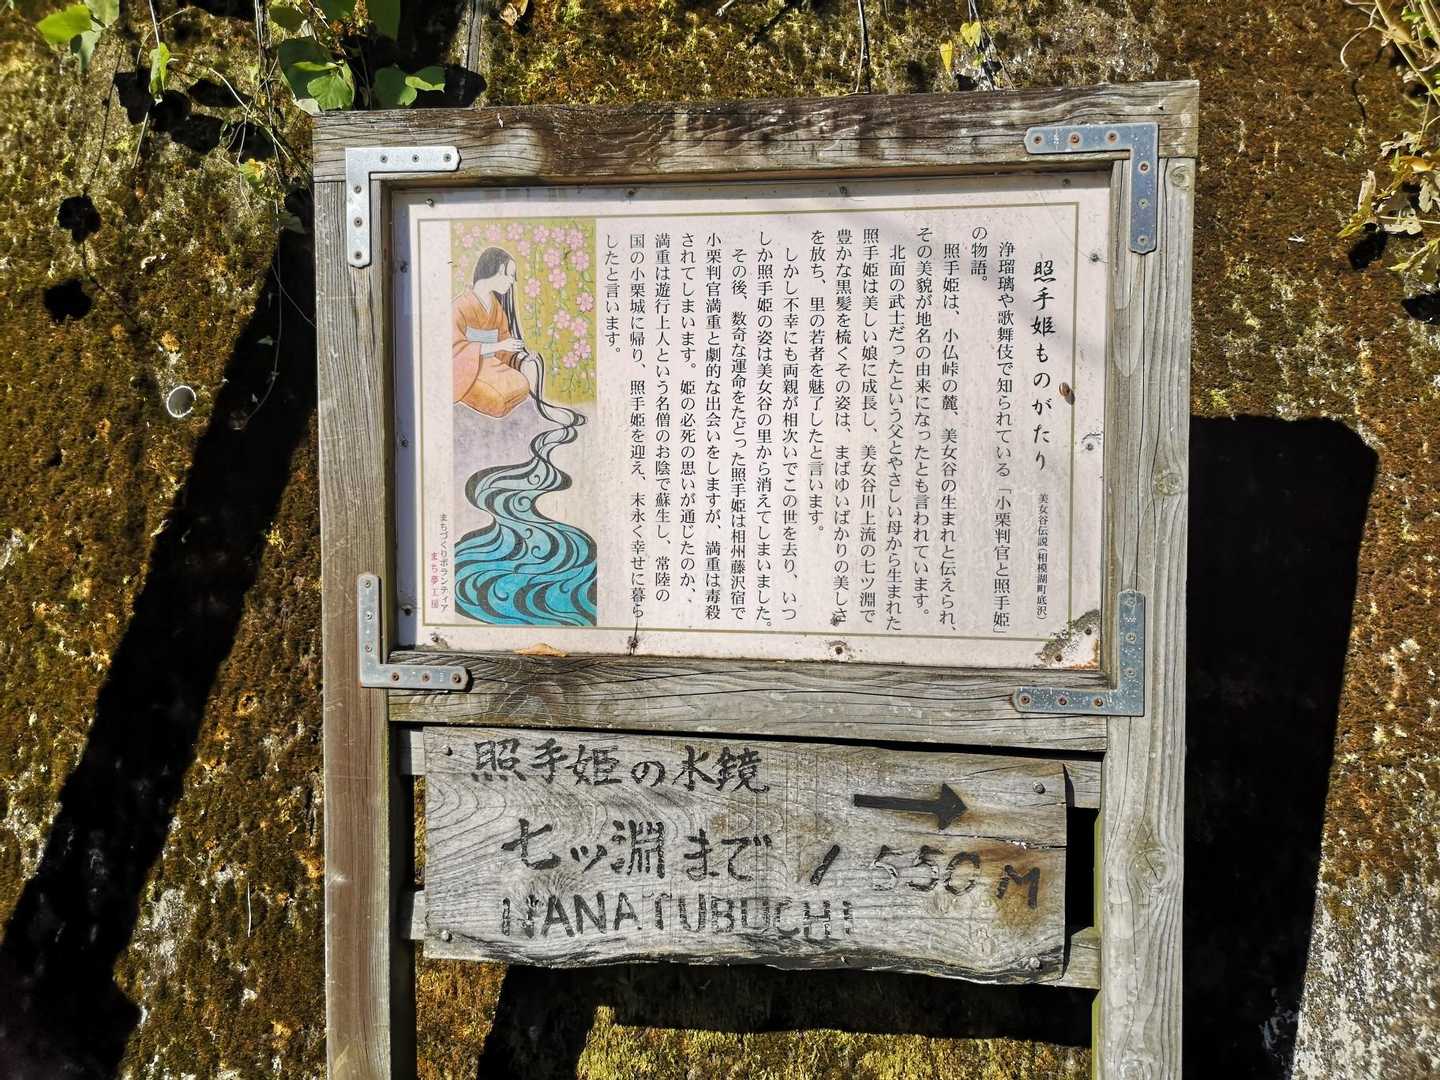 照手姫ものがたり 美女谷伝説(相模湖町底沢)
浄瑠璃や歌舞伎で知られている「小栗判官と照手姫」
の物語。
照手姫は、小仏峠の麓、美女谷の生まれと伝えられ、
その美貌が地名の由来になったとも言われています。
北面の武士だったという父とやさしい母から生まれた
照手姫は美しい娘に成長し、美女谷川上流の七ツ淵で
豊かな黒髪を梳くその姿は、まばゆいばかりの美しさ
を放ち、里の若者を魅了したと言います。
しかし不幸にも両親が相次いでこの世を去り、いつ
しか照手姫の姿は美女谷の里から消えてしまいました。
その後、数奇な運命をたどった照手姫は相州藤沢宿で
小栗判官満重と劇的な出会いをしますが、満重は毒殺
されてしまいます。姫の必死の思いが通じたのか、
満重は遊行上人という名僧のお陰で蘇生し、常陸の
国の小栗城に帰り、照手姫を迎え、末永く幸せに暮ら
したと言います。
まちづくりボランティア
まち夢工房
照手姫の水鏡
七ッ淵まで 1550M
NANATUBUCHI